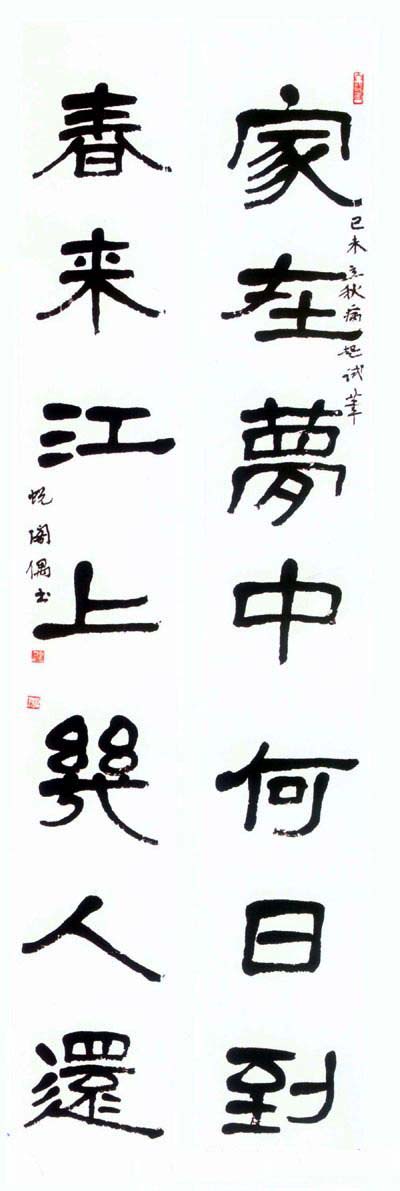 家在夢中何日到
己未立秋病起试笔
春来江上幾人還
蜕阁偶书